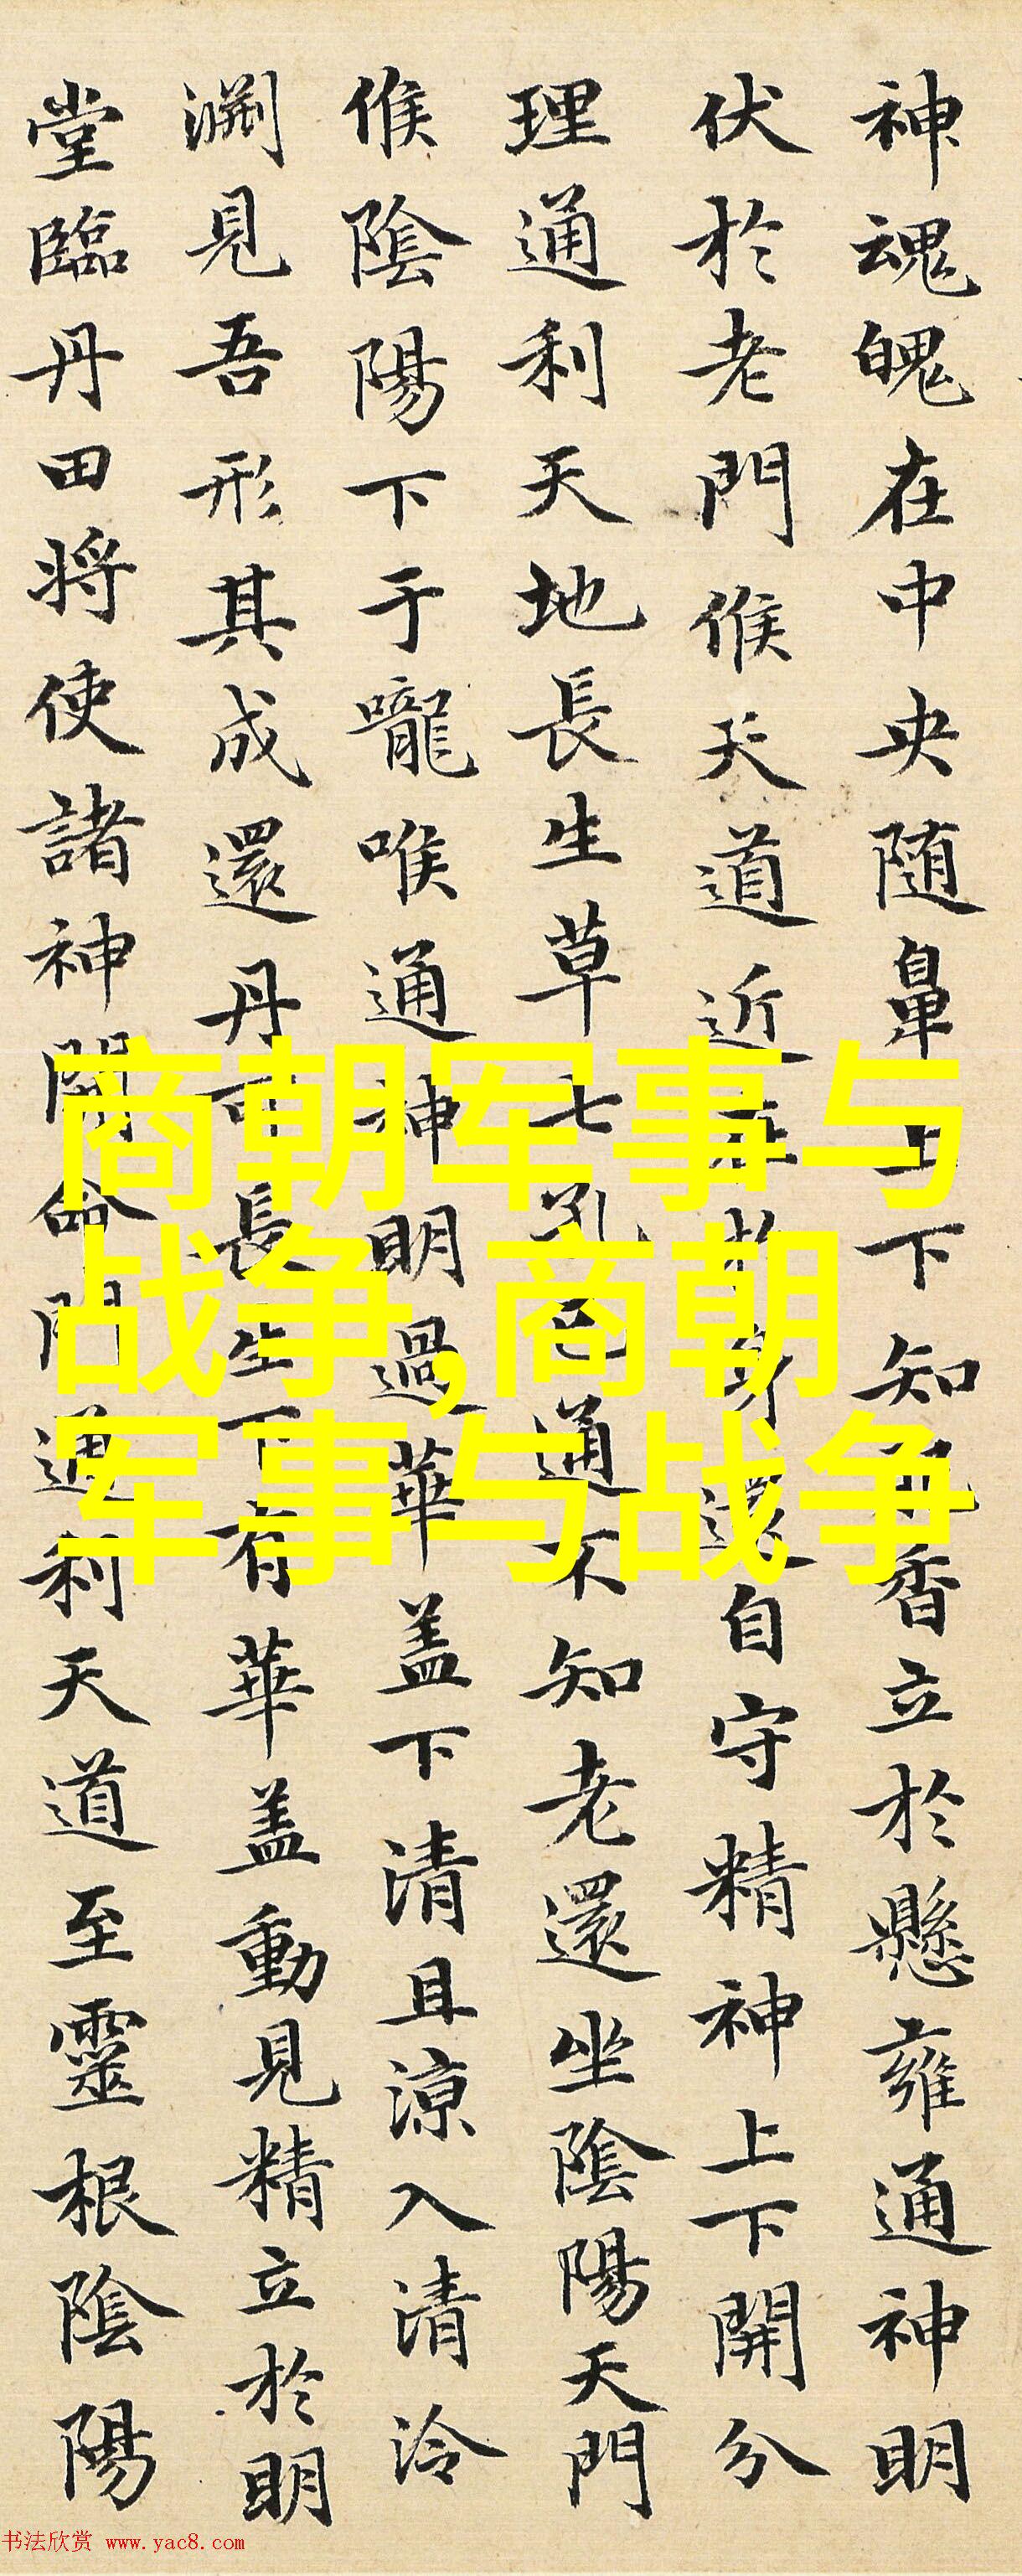 神魂魄在中央随鼻上下知香立於懸雍通神明
伏於老門候天道近在於身還自守精神上下開分
理通利天地長生草七孔已通不知老還坐陰陽天門
候陰陽下于嚨喉通神明過華盖下清且涼入清泠
渊見吾形其成還丹可長生下有華盖動見精立於明
堂臨丹田将使諸神開命門通利天道至靈根陰陽
商朝军事与
战争,商朝
军事与战争
书法欣赏 www.yac8.com